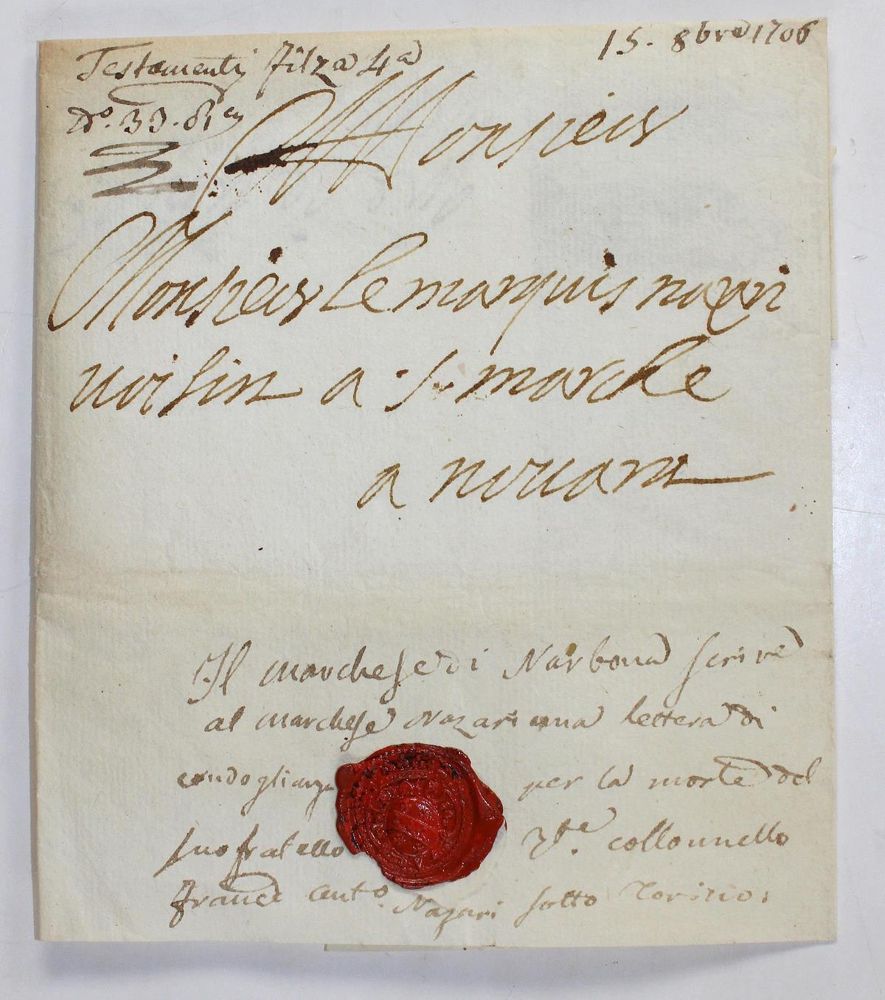 Testamenti Filza 4a
15. 8bre 1706
No. 33.
Monsieur
Monsieur le marquis nazari
voisin a St marche
a novara
Il Marchese di Narbona scrive
al marchese Nazari una lettera di
condoglianza per la morte del
suo fratello collonnello
Nazari sotto Torino.